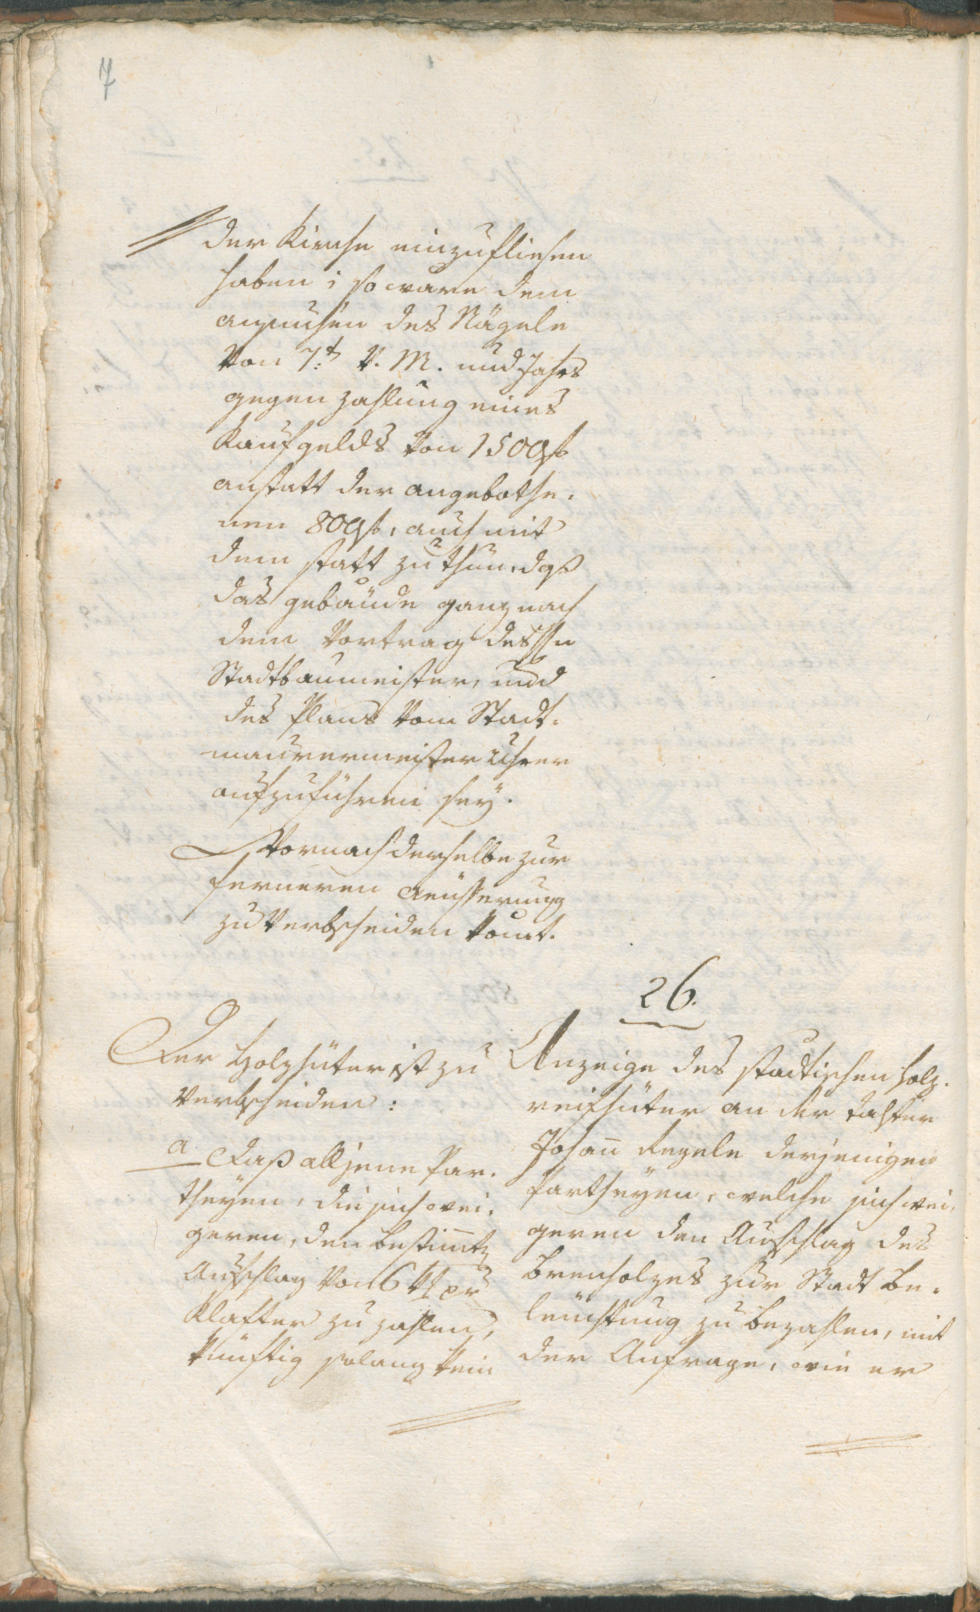 7
der Kirche einzufliesen
haben; so ware dem
ansuchen des Nägele
von 7t. v. M. und Jahrs
gegen zahlung eines
Kaufgelds von 150 f
anstatt der angebothe-
nen 80 f, auch mit
dem statt zu thun, daß
das gebäude ganz nach
dem Vortrag des H
Stadtbaumeister, und
des Plans vom Stadt-
maurermeister Uhrer
aufzuführen sey.
Wornach derselbe zur
ferneren äusserung
zu verbscheiden kommt.
26.
Der Holzhüter ist zu
verbscheiden:
a Daß all jene Par-
theyen, die sich wei-
geren, den bestimmten
Aufschlag von 6 xr pr
Klafter zu zahlen,
künftig solang kein
Anzeige des stadtischen holz-
reifhüter an der
Johann Regele derjenigen
Partheyen, welche sich wei-
geren den Aufschlag des
brenholzes zur Stadt be-
leuchtung zu bezahlen, mit
der Anfrage, wie er